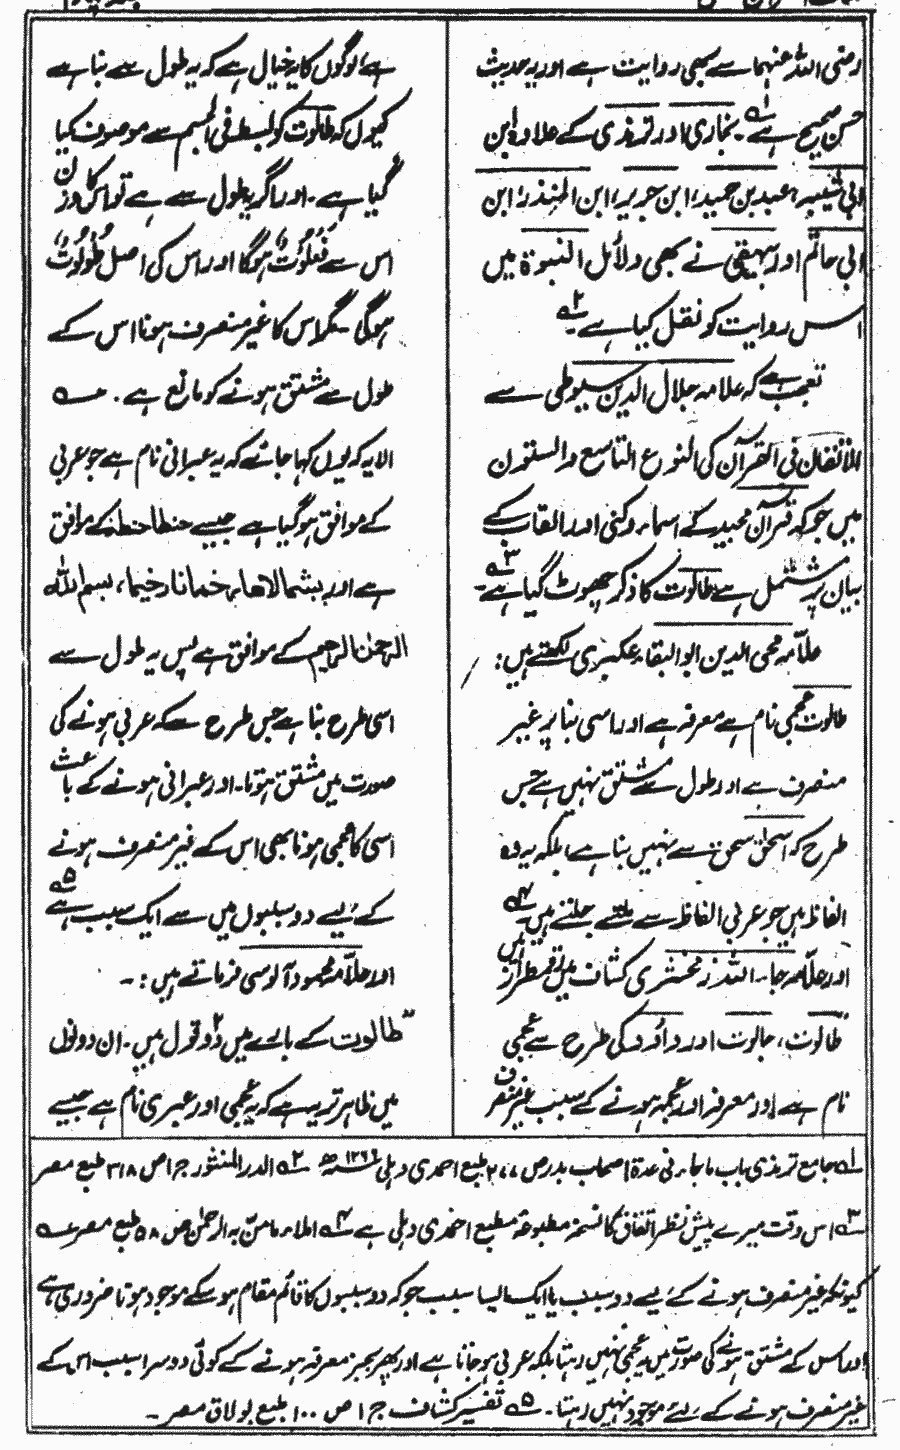 رضی اللہ عنہما سے بھی روایت ہے اور یہ حدیث
حسن صحیح ہے ۱؎ - بخاری اور ترمذی کے علاوہ ابن
ابی شیبہ، عبد بن حمید، ابن جریر، ابن المنذر، ابن
ابی حاتم اور بیہقی نے بھی دلائل النبوۃ میں
اس روایت کو نقل کیا ہے ۲؎
تعجب ہے کہ علامہ جلال الدین سیوطی سے
الاتقان فی القرآن کی النوع التاسع والستون
میں جو کہ قرآن مجید کے اسماء وکنی اور القاب کے
بیان پر مشتمل ہے طالوت کا ذکر چھوٹ گیا ہے ۳؎ -
علّامہ محی الدین ابو البقاء عکبری لکھتے ہیں :
طالوت عجمی نام ہے معرفہ ہے اور اسی بنا پر غیر
منصرف ہے اور طول سے مشتق نہیں ہے جس
طرح کہ اسحٰق سحق سے نہیں بنا ہے، بلکہ یہ وہ
الفاظ ہیں جو عربی الفاظ سے ملتے جلتے ہیں ۴؎
اور علّامہ جار اللہ زمخشری کشاف میں رقمطراز ہیں
"طالوت، جالوت اور داؤد کی طرح سے عجمی
نام ہے اور معرفہ اور عجمہ ہونے کے سبب غیر منصرف
ہے، لوگوں کا یہ خیال ہے کہ یہ طول سے بنا ہے
کیوں کہ طالوت کو بسطۃ فی الجسم سے موصوف کیا
گیا ہے - اور اگر یہ طول سے ہے تو اس کا وزن
اس سے فَعَلُوْتٌ ہوگا اور اس کی اصل طَوَلُوْتٌ
ہوگی - مگر اس کا غیر منصرف ہونا اس کے
طول سے مشتق ہونے کو مانع ہے -
الا یہ کہ یوں کہا جائے کہ یہ عبرانی نام ہے جو عربی
کے موافق ہو گیا ہے جیسے حنطا حنطہ کے موافق
ہے اور بشما لاھا رخمانا رخیما، بسم اللہ
الرحمٰن الرحیم کے موافق ہے پس یہ طول سے
اسی طرح بنا ہے جس طرح سے کہ عربی ہونے کی
صورت میں مشتق ہوتا - اور عبرانی ہونے کے باعث
اسی کا عجمی ہونا بھی اس کے غیر منصرف ہونے
کے لیے دو سببوں میں سے ایک سبب ہے ۵؎
اور علّامہ محمود آلوسی فرماتے ہیں :-
"طالوت کے بارے میں دو ۲ قول ہیں - ان دونوں
میں ظاہر تر یہ ہے کہ یہ عجمی اور عبری نام ہے جیسے
۱؎ جامع ترمذی باب ماجاء فی عدۃ اصحاب بدر ص ۲۰۰ طبع احمدی دہلی ۱۲۶۶ھ ۲؎ الدر المنثور ج ۱ ص ۳۱۸ طبع مصر
۳؎ اس وقت میرے پیش نظر اتقان کا نسخہ مطبوعہ مطبع احمدی دہلی ہے ۴؎ املاء ما منّ بہ الرحمٰن ص ۵۸ طبع مصر
کیونکہ غیر منصرف ہونے کے لیے دو سبب یا ایک ایسا سبب جو کہ دو سببوں کا قائم مقام ہو سکے موجود ہونا ضروری ہے
اور اس کے مشتق ہونے کی صورت میں یہ عجمی نہیں رہتا بلکہ عربی ہو جاتا ہے اور پھر بجز معرفہ ہونے کے کوئی دوسرا سبب اس کے
غیر منصرف ہونے کے لئے موجود نہیں رہتا - ۵؎ تفسیر کشاف ج ۱ ص ۱۰۰ طبع بولاق مصر -